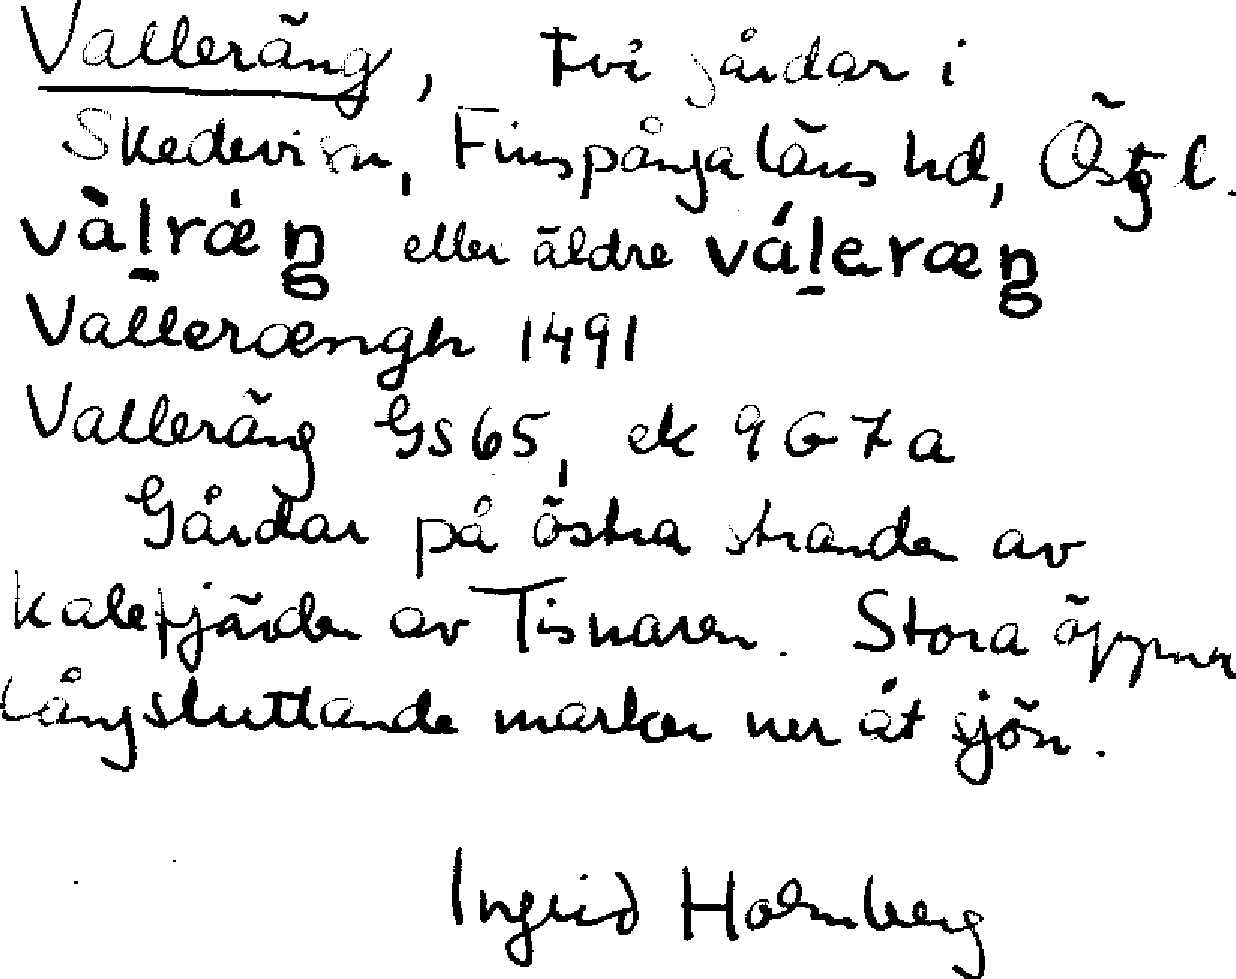 Valleräng, två gårdar i
Skedevi sn, Finspånga läns hd, Östg l.
vàl̠ræ̀ŋ eller äldre vál̠eræŋ
Valleræengh 1491
Valleräng GS65, ek 9G7a
Gårdar på östra stranden av
kalefjärden av Tisnaren. Stora öppna
långsluttande marker ner åt sjön.
Ingrid Holmberg